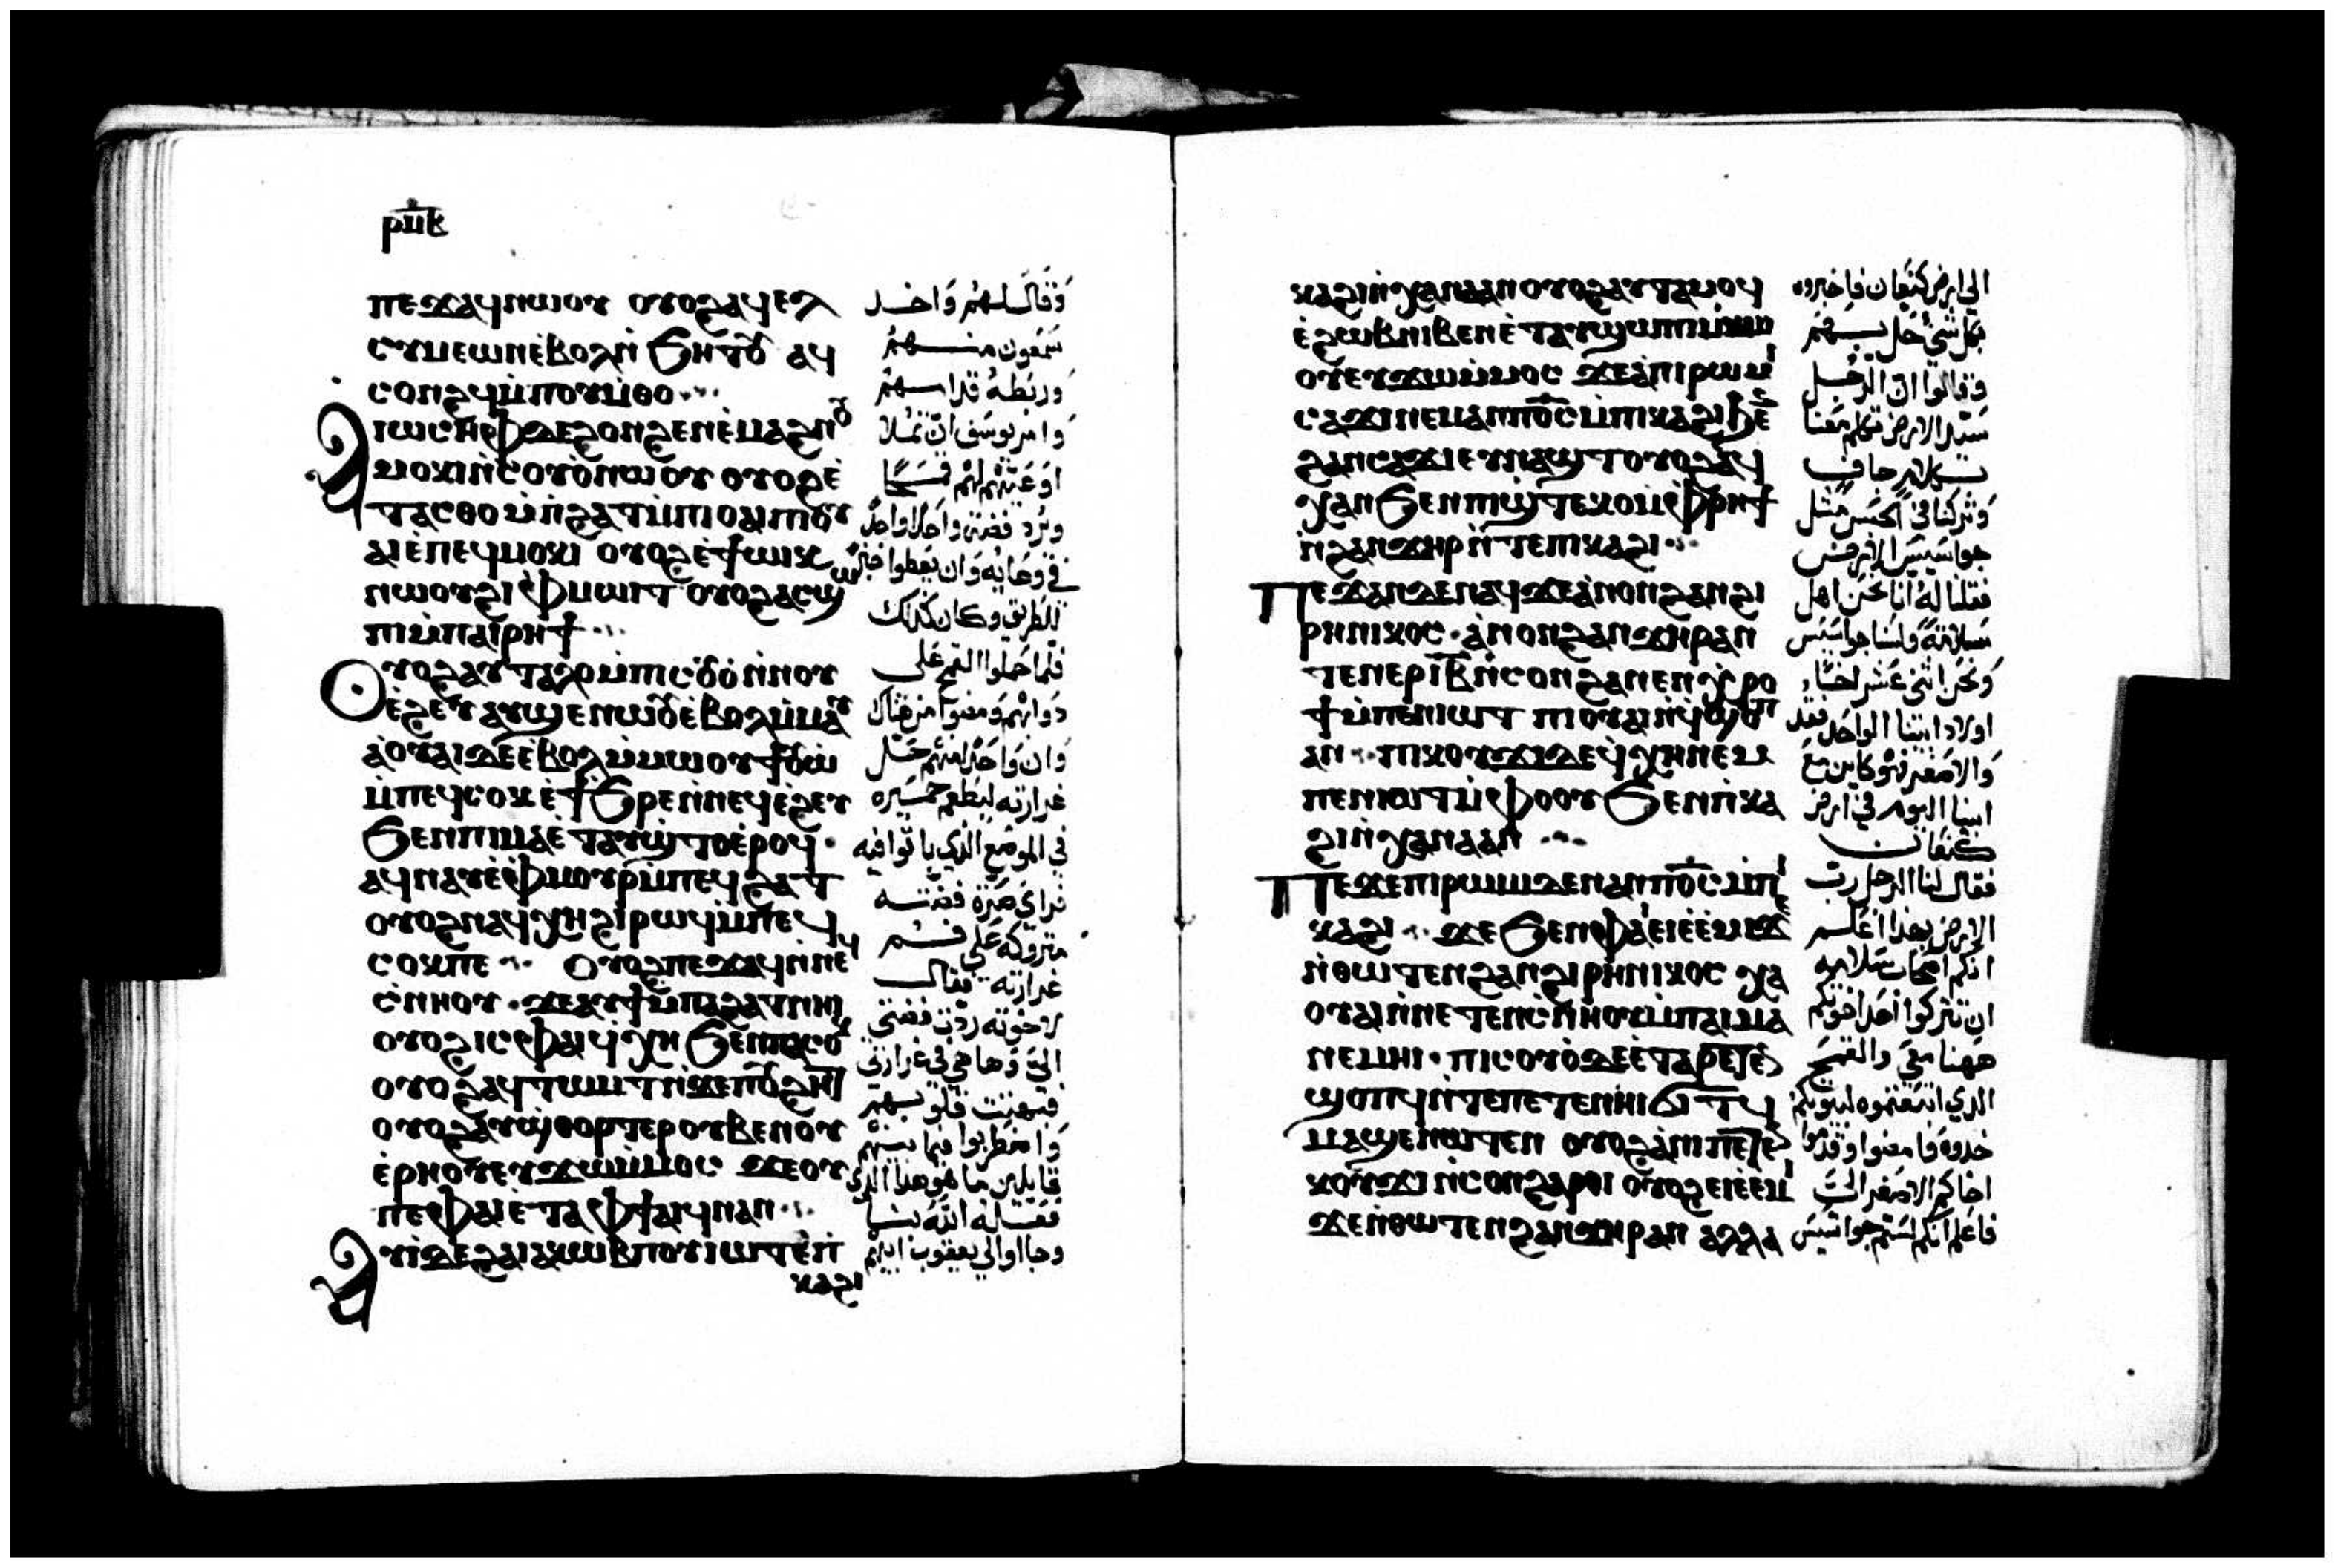 ⲣⲙⲃ
ⲡⲉϫⲁϥⲛⲱⲟⲩ ⲟⲩⲟϩⲁϥⲉⲗ
ⲥⲩⲙⲉⲱⲛⲉ̀ⲃⲟⲗⲛ̀ϧⲏⲧⲟⲩ ⲁϥ
ⲥⲟⲛϩϥⲙ̀ⲡⲟⲩⲙ̀ⲑⲟ
ⲓⲱⲥⲏⲫⲇⲉϩⲟⲛϩⲉⲛⲉ̀ⲙⲁϩⲛⲟⲩ
ⲙⲟⲕⲓⲛ̀ⲥⲟⲩⲟ̀ⲛⲱⲟⲩ ⲟⲩⲟϩⲉ̀
ⲧⲁⲥⲑⲟⲙ̀ⲡϩⲁⲧⲙ̀ⲡⲓⲟⲩⲁⲓⲡⲓⲟⲩ
ⲁⲓⲉ̀ⲡⲉϥⲙⲟⲕⲓ ⲟⲩⲟϩⲉ̀ϯⲱⲓⲕ
ⲛⲱⲟⲩϩⲓⲫⲙⲱⲓⲧ ⲟⲩⲟϩⲁⲥϣⲱ
ⲡⲓⲙ̀ⲡⲁⲓⲣⲏϯ
ⲟⲩⲟϩⲁⲩⲧⲁⲗⲟⲙ̀ⲡⲓⲥⲟⲩⲟ̀ⲛ̀ⲛⲟⲩ
ⲉ̀ϩⲉⲩ ⲁⲩϣⲉⲛⲱⲟⲩⲉ̀ⲃⲟⲗⲙ̀ⲙⲁⲩ
ⲁ̀ⲟⲩⲁⲓⲇⲉⲉ̀ⲃⲟⲗⲙ̀ⲙⲱⲟⲩϯⲟⲩⲱ̀
ⲙ̀ⲡⲉϥⲥⲟⲕ ⲉ̀ϯϧⲣⲉⲛ̀ⲛⲉϥⲉ̀ϩⲉⲩ
ϧⲉⲛⲡⲓⲙⲁⲉ̀ⲧⲁⲩϣ̀ⲧⲟⲉ̀ⲣⲟϥ
ⲁϥⲛⲁⲩⲉ̀ⲫⲙⲟⲩⲣⲙ̀ⲡⲉϥϩⲁⲧ
ⲟⲩⲟϩⲛⲁϥⲭⲏϩⲓⲣⲱϥⲙ̀ⲡⲉϥ
ⲥⲟⲕⲡⲉ ⲟⲩⲟϩⲡⲉϫⲁϥⲛ̀ⲛⲉϥ
ⲥ̀ⲛⲏⲟⲩ ϫⲉⲁⲩϯⲙ̀ⲡⲁϩⲁⲧⲛⲏⲓ
ⲟⲩⲟϩⲓⲥⲫⲁⲓϥ̀ⲭⲏ ϧⲉⲛⲡⲁⲥⲟⲕ
ⲟⲩⲟϩⲁϥⲧⲱⲙⲧⲛ̀ϫⲉⲡⲟⲩϩⲏⲧ
ⲟⲩⲟϩⲁⲩϣ̀ⲑⲟⲣⲧⲉⲣⲟⲩⲃⲉⲛⲟⲩ
ⲉ̀ⲣⲏⲟⲩⲉⲩϫⲱⲙ̀ⲙⲟⲥ ϫⲉⲟⲩ
ⲡⲉⲫⲁⲓⲉ̀ⲧⲁⲫϯⲁⲓϥⲛⲁⲛ
ⲁⲩⲓ̀ⲇⲉϩⲁⲓⲁⲕⲱⲃⲡⲟⲩⲓⲱⲧⲉ̀ⲡ
ⲕⲁϩⲓ
وقال لهم واخد
شمعون منهم
وربطه قدامهم
وامر يوسف ان تملا
اوعيتهم لهم قمحًا
وترد فضة واحد واحد
في وعايه وان يعطوا خبز
للطريق وكان كذلك
فلما حملوا القمح على
دوابهم ومضوا من هناك
وان واحدًا منهم حل
غرارته ليطعم حميره
في الموضع الذي باتوا فيه
فراي صرة فضته
متروكه على فم
غرارته فقال
لاخوته ردت فضتي
الي وها هي في غرارتي
فبهتت قلوبهم
واضطربوا فيما بينهم
قايلين ما هو هذا الذي
فعله الله بنا
وجااوا الي يعقوب ابيهم
ⲕⲁϩⲓⲛ̀ⲭⲁⲛⲁⲁⲛ ⲟⲩⲟϩⲁⲩⲧⲁⲙⲟϥ
ⲉ̀ϩⲱⲃⲛⲓⲃⲉⲛⲉ̀ⲧⲁⲩϣⲱⲡⲓⲙ̀ⲙⲱ
ⲟⲩⲉⲩϫⲱⲙ̀ⲙⲟⲥ ϫⲉⲁ̀ⲡⲓⲣⲱⲙⲓ
ⲥⲁϫⲓⲛⲉⲙⲁⲛⲡϭⲟⲓⲥⲙ̀ⲡⲕⲁϩⲓϧⲉⲛ
ϩⲁⲛⲥⲁϫⲓⲉⲩⲛⲁϣⲧⲟⲩⲟϩⲁϥ
ⲭⲁⲛ ϧⲉⲛⲡⲓϣ̀ⲧⲉⲕⲟⲙ̀ⲫⲣⲏϯ
ⲛ̀ϩⲁⲛϫⲏⲣⲛ̀ⲧⲉⲡⲓⲕⲁϩⲓ
ⲡⲉϫⲁⲛⲇⲉⲛⲁϥϫⲉⲁ̀ⲛⲟⲛϩⲁⲛϩⲓ
ⲣⲏⲛⲓⲕⲟⲥ ⲁ̀ⲛⲟⲛϩⲁⲛϫⲏⲣⲁⲛ
ⲧⲉⲛⲉⲣⲓⲃⲛ̀ⲥⲟⲛϩⲁⲛⲉⲛϣ̀ⲣⲟ
ϯⲙ̀ⲡⲉⲛⲓⲱⲧ ⲡⲓⲟⲩⲁⲓⲛ̀ϥ̀ϣⲟⲡ
ⲁⲛ ⲡⲓⲕⲟⲩϫⲓⲇⲉϥ̀ⲭⲏⲛⲉⲙ
ⲡⲉⲛⲓⲱⲧⲙ̀ⲫⲟⲟⲩ ϧⲉⲛⲡ̀ⲕⲁ
ϩⲓⲛ̀ⲭⲁⲛⲁⲁⲛ
ⲡⲉϫⲉⲡⲓⲣⲱⲙⲓⲇⲉⲛⲁⲛⲡϭⲟⲓⲥⲙ̀ⲡⲓ
ⲕⲁϩⲓ ϫⲉ ϧⲉⲛⲫⲁⲓⲉⲓⲉ̀ⲉ̀ⲙⲓϫⲉ
ⲛ̀ⲑⲱⲧⲉⲛϩⲁⲛϩⲓⲣⲏⲛⲓⲕⲟⲥ ⲭⲁ
ⲟⲩⲁⲓⲛ̀ⲛⲉⲧⲉⲛⲥ̀ⲛⲏⲟⲩⲙ̀ⲡⲁⲓⲙⲁ
ⲛⲉⲙⲏⲓ ⲡⲓⲥⲟⲩⲟ̀ⲇⲉⲉ̀ⲧⲁⲣⲉⲧⲉⲛ
ϣⲟⲡϥⲛ̀ⲧⲉⲡⲉⲧⲉⲛⲏⲓϭⲓⲧϥ
ⲙⲁϣⲉⲛⲱⲧⲉⲛ ⲟⲩⲟϩⲁ̀ⲛⲓⲡⲉⲧⲉⲛ
ⲕⲟⲩϫⲓ ⲛ̀ⲥⲟⲛϩⲁⲣⲟⲓ ⲟⲩⲟϩⲉⲓⲉ̀ⲉ̀ⲙⲓ
ϫⲉⲛ̀ⲑⲱⲧⲉⲛϩⲁⲛϫⲏⲣⲁⲛ ⲁⲗⲗⲁ
الي ارض كنعان فاخبروه
بكل شي حل بهم
وقالوا ان الرجل
سيد الارض تكلم معنا
بكلام جاف
وتركنا في الحبس مثل
جواسيس الارض
فقلنا له انا نحن اهل
سلامة ولسنا جواسيس
ونحن اثني عشر اخًا
اولاد ابينا الواحد فقد
والاصغر فهو كاين مع
ابينا اليوم في ارض
كنعان
فقال لنا الرجل رب
الارض بهذا اعلم
انكم اصحاب سلامه
ان تتركوا احد اخوتكم
ههنا معي والقمح
الذي ابتعتموه لبيوتكم
خدوه فامضوا وقدموا
اخاكم الاصغر الي
فاعلم انكم لستم جواسيس